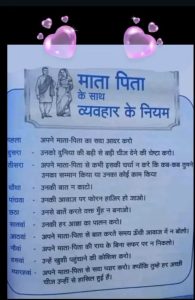 माता पिता
के साथ
व्यवहार के नियम
पहला - अपने माता-पिता का सदा आदर करो
दूसरा - उनको दुनिया की बड़ी से बड़ी चीज देने की चेष्टा करो।
तीसरा - अपने माता-पिता से कभी इसकी चर्चा न करें कि कब-कब तुमने
उनका सम्मान किया या उनका कोई काम किया
चौथा - उनकी बात न काटो।
पांचवा - उनकी आवाज पर फौरन हाजिर हो जाओ।
छठा - उनसे बातें करते वक्त मुँह न बनाओ।
सातवां - उनकी हर आज्ञा का पालन करो।
आठवां - अपने माता-पिता से बात करते समय ऊँची आवाज में न बोलो।
नौवां - अपने माता-पिता की राय के बिना सफर पर न निकलो।
दसवां - उन्हें खुशी पहुंचाने की कोशिश करो।
ग्यारहवां - अपने माता-पिता से सदा प्यार करो। क्योंकि तुम्हे हर अच्छी
चीज उन्हीं से हासिल हुई हैं।